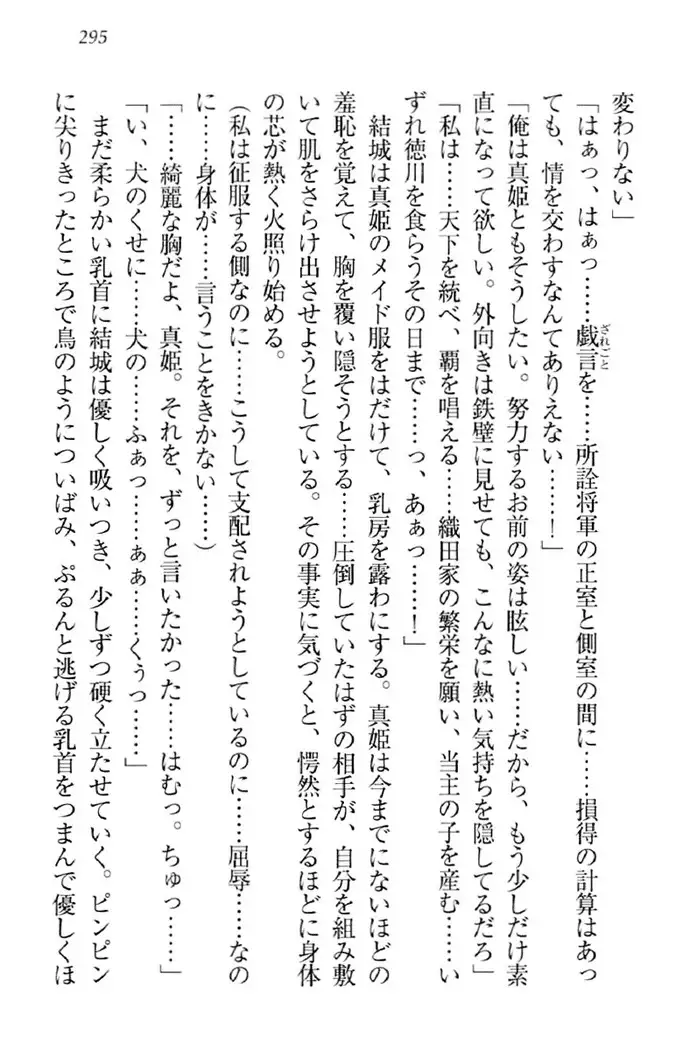 295
変わりない」
「はぁっ、はぁっ……戯言を……所詮将軍の正室と側室の間に……損得の計算はあっ
ざれごと
ても、情を交わすなんてありえない……！」
「俺は真姫ともそうしたい。努力するお前の姿は眩しい……だから、もう少しだけ素
直になって欲しい。外向きは鉄壁に見せても、こんなに熱い気持ちを隠してるだろ」
「私は……天下を統べ、覇を唱える……織田家の繁栄を願い、当主の子を産む……い
ずれ徳川を食らうその日まで……っ、あぁっ……！」
結城は真姫のメイド服をはだけて、乳房を露わにする。真姫は今までにないほどの
羞恥を覚えて、胸を覆い隠そうとする……圧倒していたはずの相手が、自分を組み敷
いて肌をさらけ出させようとしている。その事実に気づくと、愕然とするほどに身体
の芯が熱く火照り始める。
（私は征服する側なのに……こうして支配されようとしているのに……屈辱……なの
に……身体が……言うことをきかない……）
「……綺麗な胸だよ、真姫。それを、ずっと言いたかった……はむっ。ちゅっ……」
「い、犬のくせに……犬の……ふぁっ……ぁぁ……くぅっ……」
まだ柔らかい乳首に結城は優しく吸いつき、少しずつ硬く立たせていく。ピンピン
に尖りきったところで鳥のようについばみ、ぷるんと逃げる乳首をつまんで優しくほ